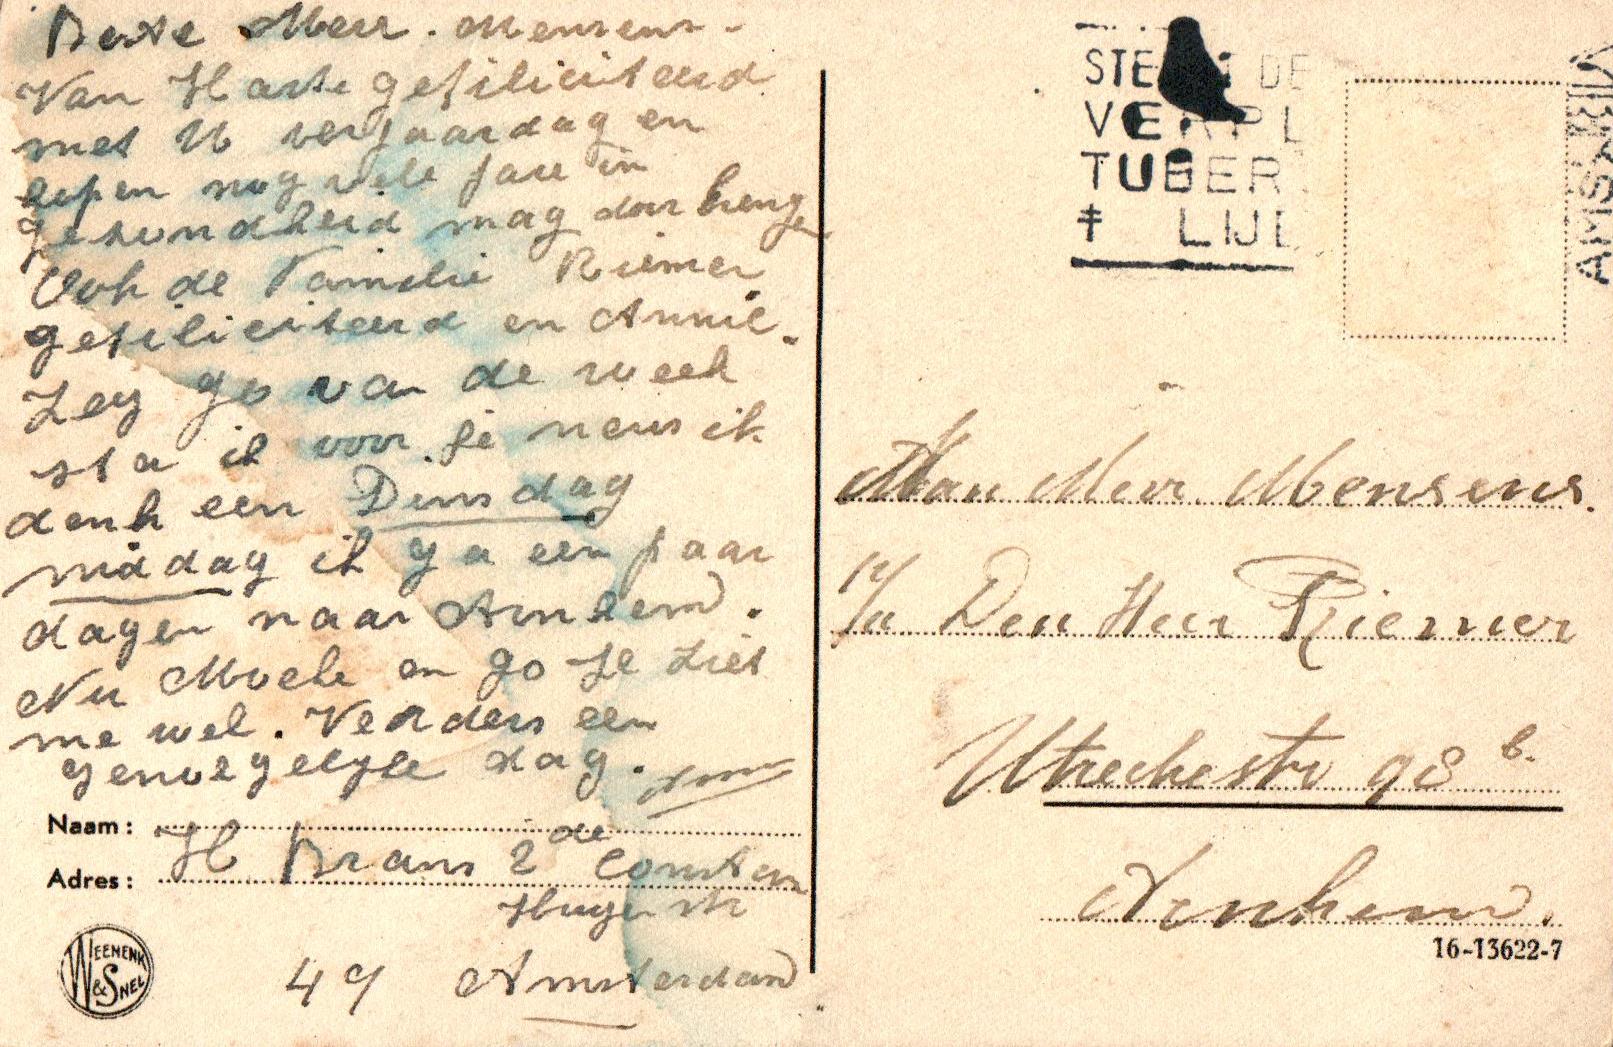 Beste Meer. Mensens.
Van Harte gefiliciteerd
met U verjaardag en
nog vele jare in
gesondheid mag door breng
Ook de Familie Riemer
gefiliciteerd en Annie.
Zeg Jo van de week
sta ik voor je neus ik
denk een Dinsdag
middag ik ga een paar
dagen naar Arnhem.
Nu Moeke en Jo Je ziet
me wel. Verders een
genoegelyke dag.
Naam:
H Brans 2de Consten
Adres:
Huygen str
49 Amsterdam
WEENENK & SNEL
STE DE
VERPL
TUBER
LIJ
AMSTERDA
Aan Meer. Mensens.
p/a Den Heer Riemer
Utrechestr 98 b.
Arnhem.
16-13622-7